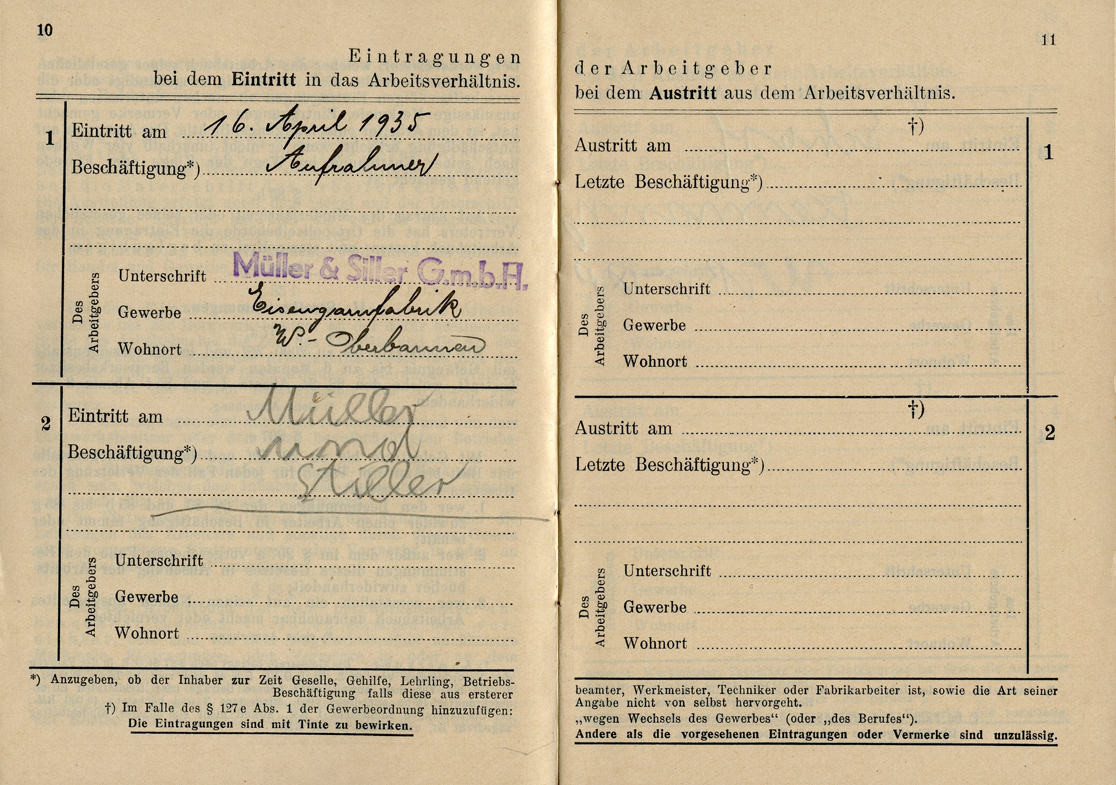 10
Eintragungen
bei dem Eintritt in das Arbeitsverhältnis.
1
Eintritt am 16. April 1935
Beschäftigung*) Aufnahmer
Des Arbeitgebers
Unterschrift Müller & Siller G.m.b.H.
Gewerbe Eisengarnfabrik
Wohnort W.-Oberbarmen
2
Eintritt am Müller
Beschäftigung*) und
Stiller
Des Arbeitgebers
Unterschrift
Gewerbe
Wohnort
*) Anzugeben, ob der Inhaber zur Zeit Geselle, Gehilfe, Lehrling, Betriebs-
Beschäftigung falls diese aus ersterer
†) Im Falle des § 127e Abs. 1 der Gewerbeordnung hinzuzufügen:
Die Eintragungen sind mit Tinte zu bewirken.
11
der Arbeitgeber
bei dem Austritt aus dem Arbeitsverhältnis.
1
Austritt am †)
Letzte Beschäftigung*)
Des Arbeitgebers
Unterschrift
Gewerbe
Wohnort
2
Austritt am †)
Letzte Beschäftigung*)
Des Arbeitgebers
Unterschrift
Gewerbe
Wohnort
beamter, Werkmeister, Techniker oder Fabrikarbeiter ist, sowie die Art seiner
Angabe nicht von selbst hervorgeht.
„wegen Wechsels des Gewerbes“ (oder „des Berufes“).
Andere als die vorgesehenen Eintragungen oder Vermerke sind unzulässig.